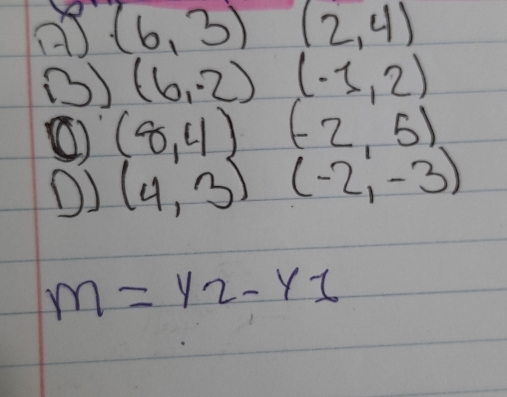 A) (6, 3) (2,4)
B) (6,-2) (-1, 2)
C) (8,4) (-2, 5)
D) (4, 3) (-2, -3)
m = Y2 - Y1